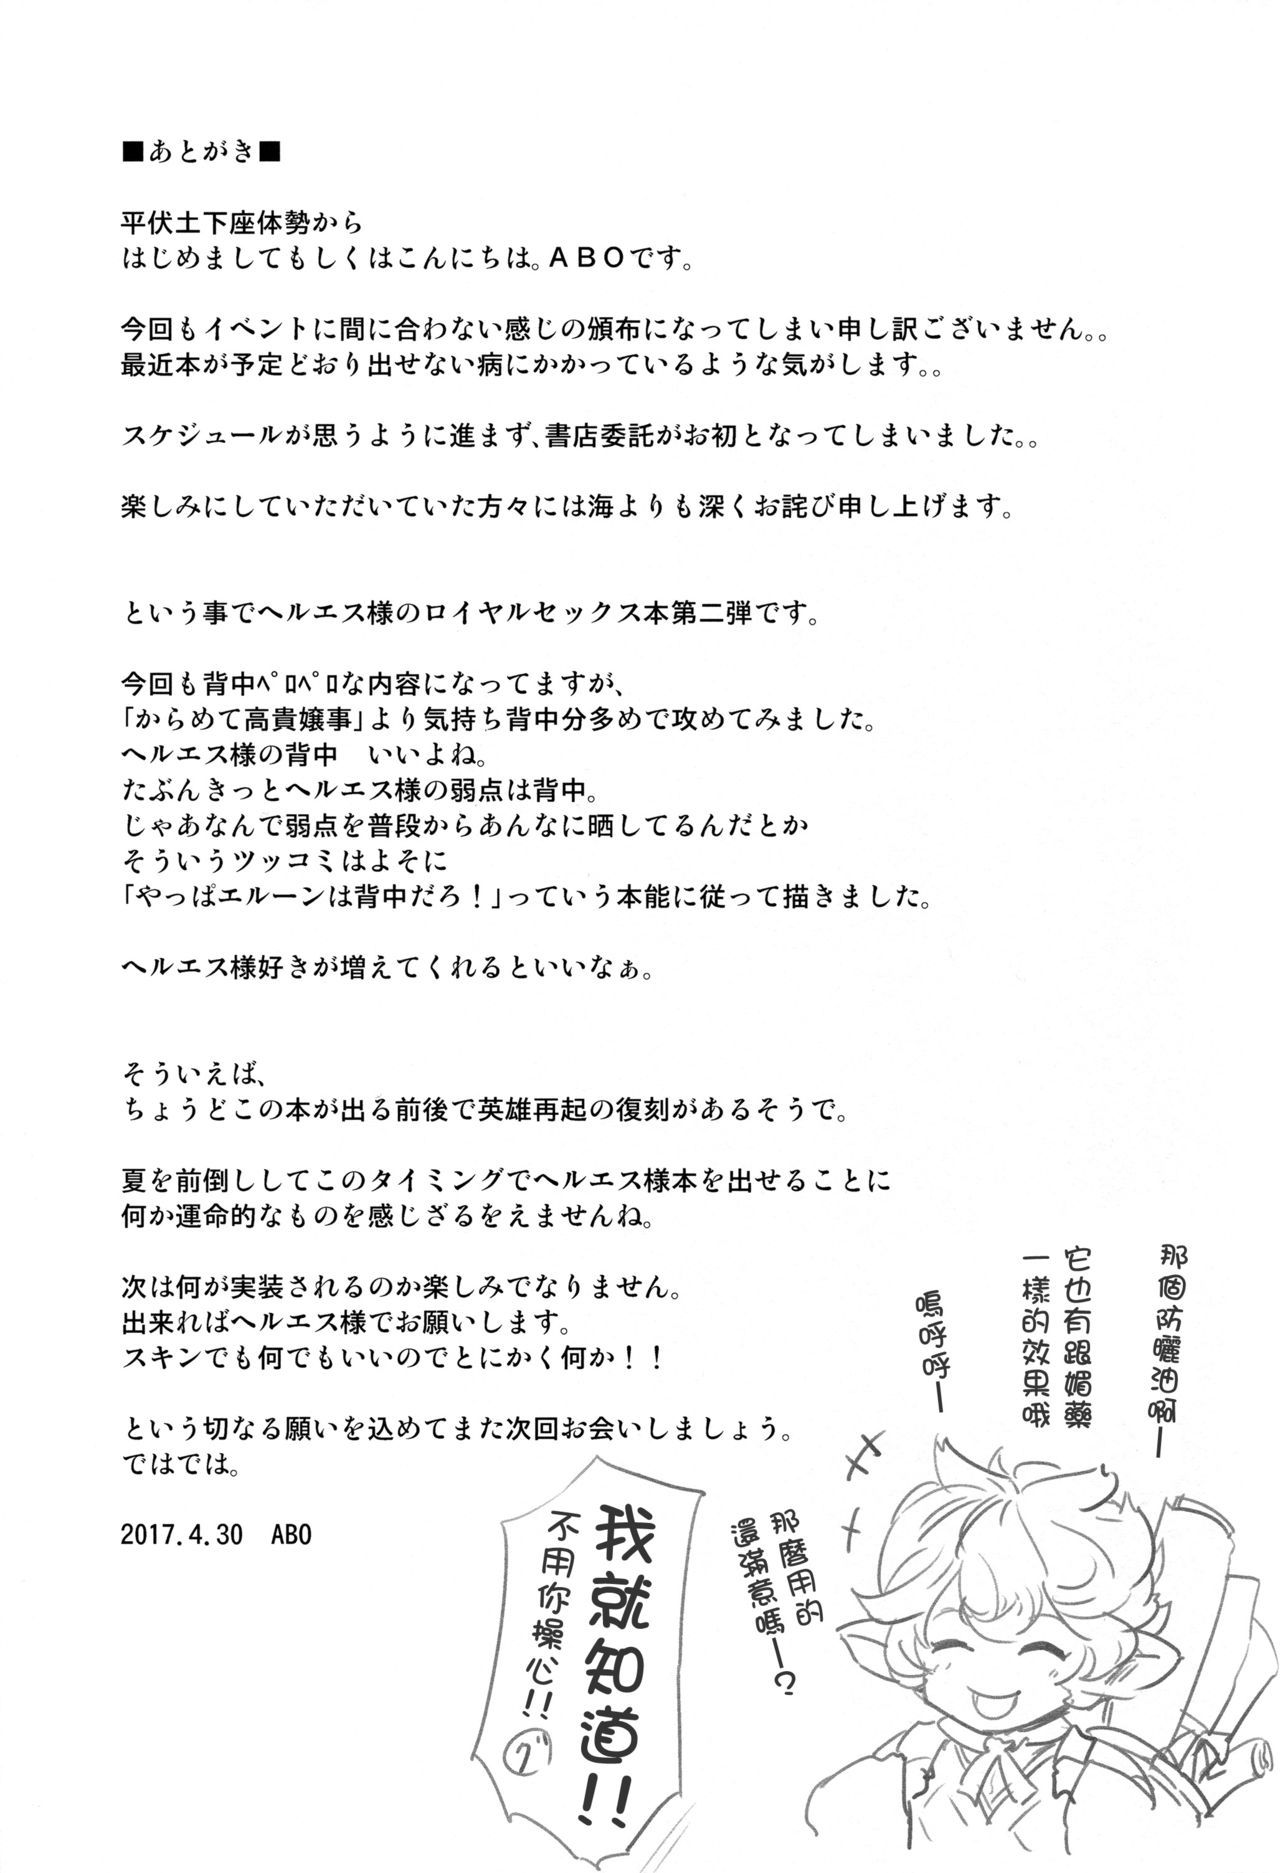 ■あとがき■
平伏土下座体勢から
はじめましてもしくはこんにちは。ABOです。
今回もイベントに間に合わない感じの頒布になってしまい申し訳ございません。。
最近本が予定どおり出せない病にかかっているような気がします。。
スケジュールが思うように進まず、書店委託がお初となってしまいました。。
楽しみにしていただいていた方々には海よりも深くお詫び申し上げます。
という事でヘルエス様のロイヤルセックス本第二弾です。
今回も背中ﾍﾟﾛﾍﾟﾛな内容になってますが、
「からめて高貴嬢事」より気持ち背中分多めで攻めてみました。
ヘルエス様の背中　いいよね。
たぶんきっとヘルエス様の弱点は背中。
じゃあなんで弱点を普段からあんなに晒してるんだとか
そういうツッコミはよそに
「やっぱエルーンは背中だろ！」っていう本能に従って描きました。
ヘルエス様好きが増えてくれるといいなぁ。
そういえば、
ちょうどこの本が出る前後で英雄再起の復刻があるそうで。
夏を前倒ししてこのタイミングでヘルエス様本を出せることに
何か運命的なものを感じざるをえませんね。
次は何が実装されるのか楽しみでなりません。
出来ればヘルエス様でお願いします。
スキンでも何でもいいのでとにかく何か！！
という切なる願いを込めてまた次回お会いしましょう。
ではでは。
2017.4.30　ABO
那個防曬油啊ー
它也有跟媚藥
一樣的效果哦
嗚呼呼ー
那麼用的
還滿意嗎ー?
我就知道!!
不用你操心!!
グ